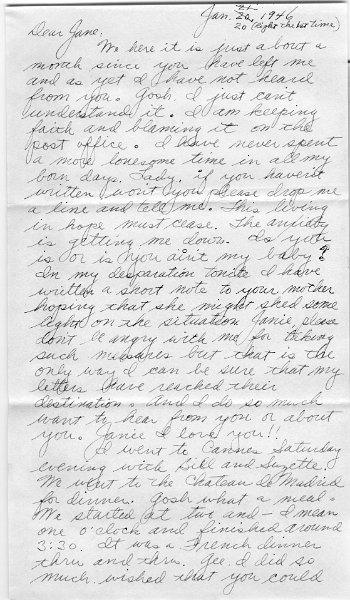 21
Jan. 20, 1946
20 (Right the 1st time)
Dear Jane,
We here it is just about a
month since you have left me
and as yet I have not heard
from you. Gosh I just can't
understands it. I am keeping
faith and blaming it on the
post office. I have never spent
a more lonesome time in all my
born days. Lady, if you haven't
written won't you please drop me
a line and tell me. This living
in hope must cease. The anxiety
is getting me down. Is you
is or is you ain't my baby?
In my desparation tonite I have
written a short note to your mother
hoping that she might shed some
light on the situation. Janie, please
don't be angry with me for taking
such measures but that is the
only way I can be sure that my
letters have reached their
destination. And I do so much
want to hear from you or about
you. Janie I love you!!
I went to Cannes Saturday
evening with Bill and Suzette.
We went to the Chateau de Madrid
for dinner. Gosh what a meal.
We started at two and - I mean
one o'clock and finished around
3:30. It was a French dinner
thru and thru. Gee I did so
much wished that you could